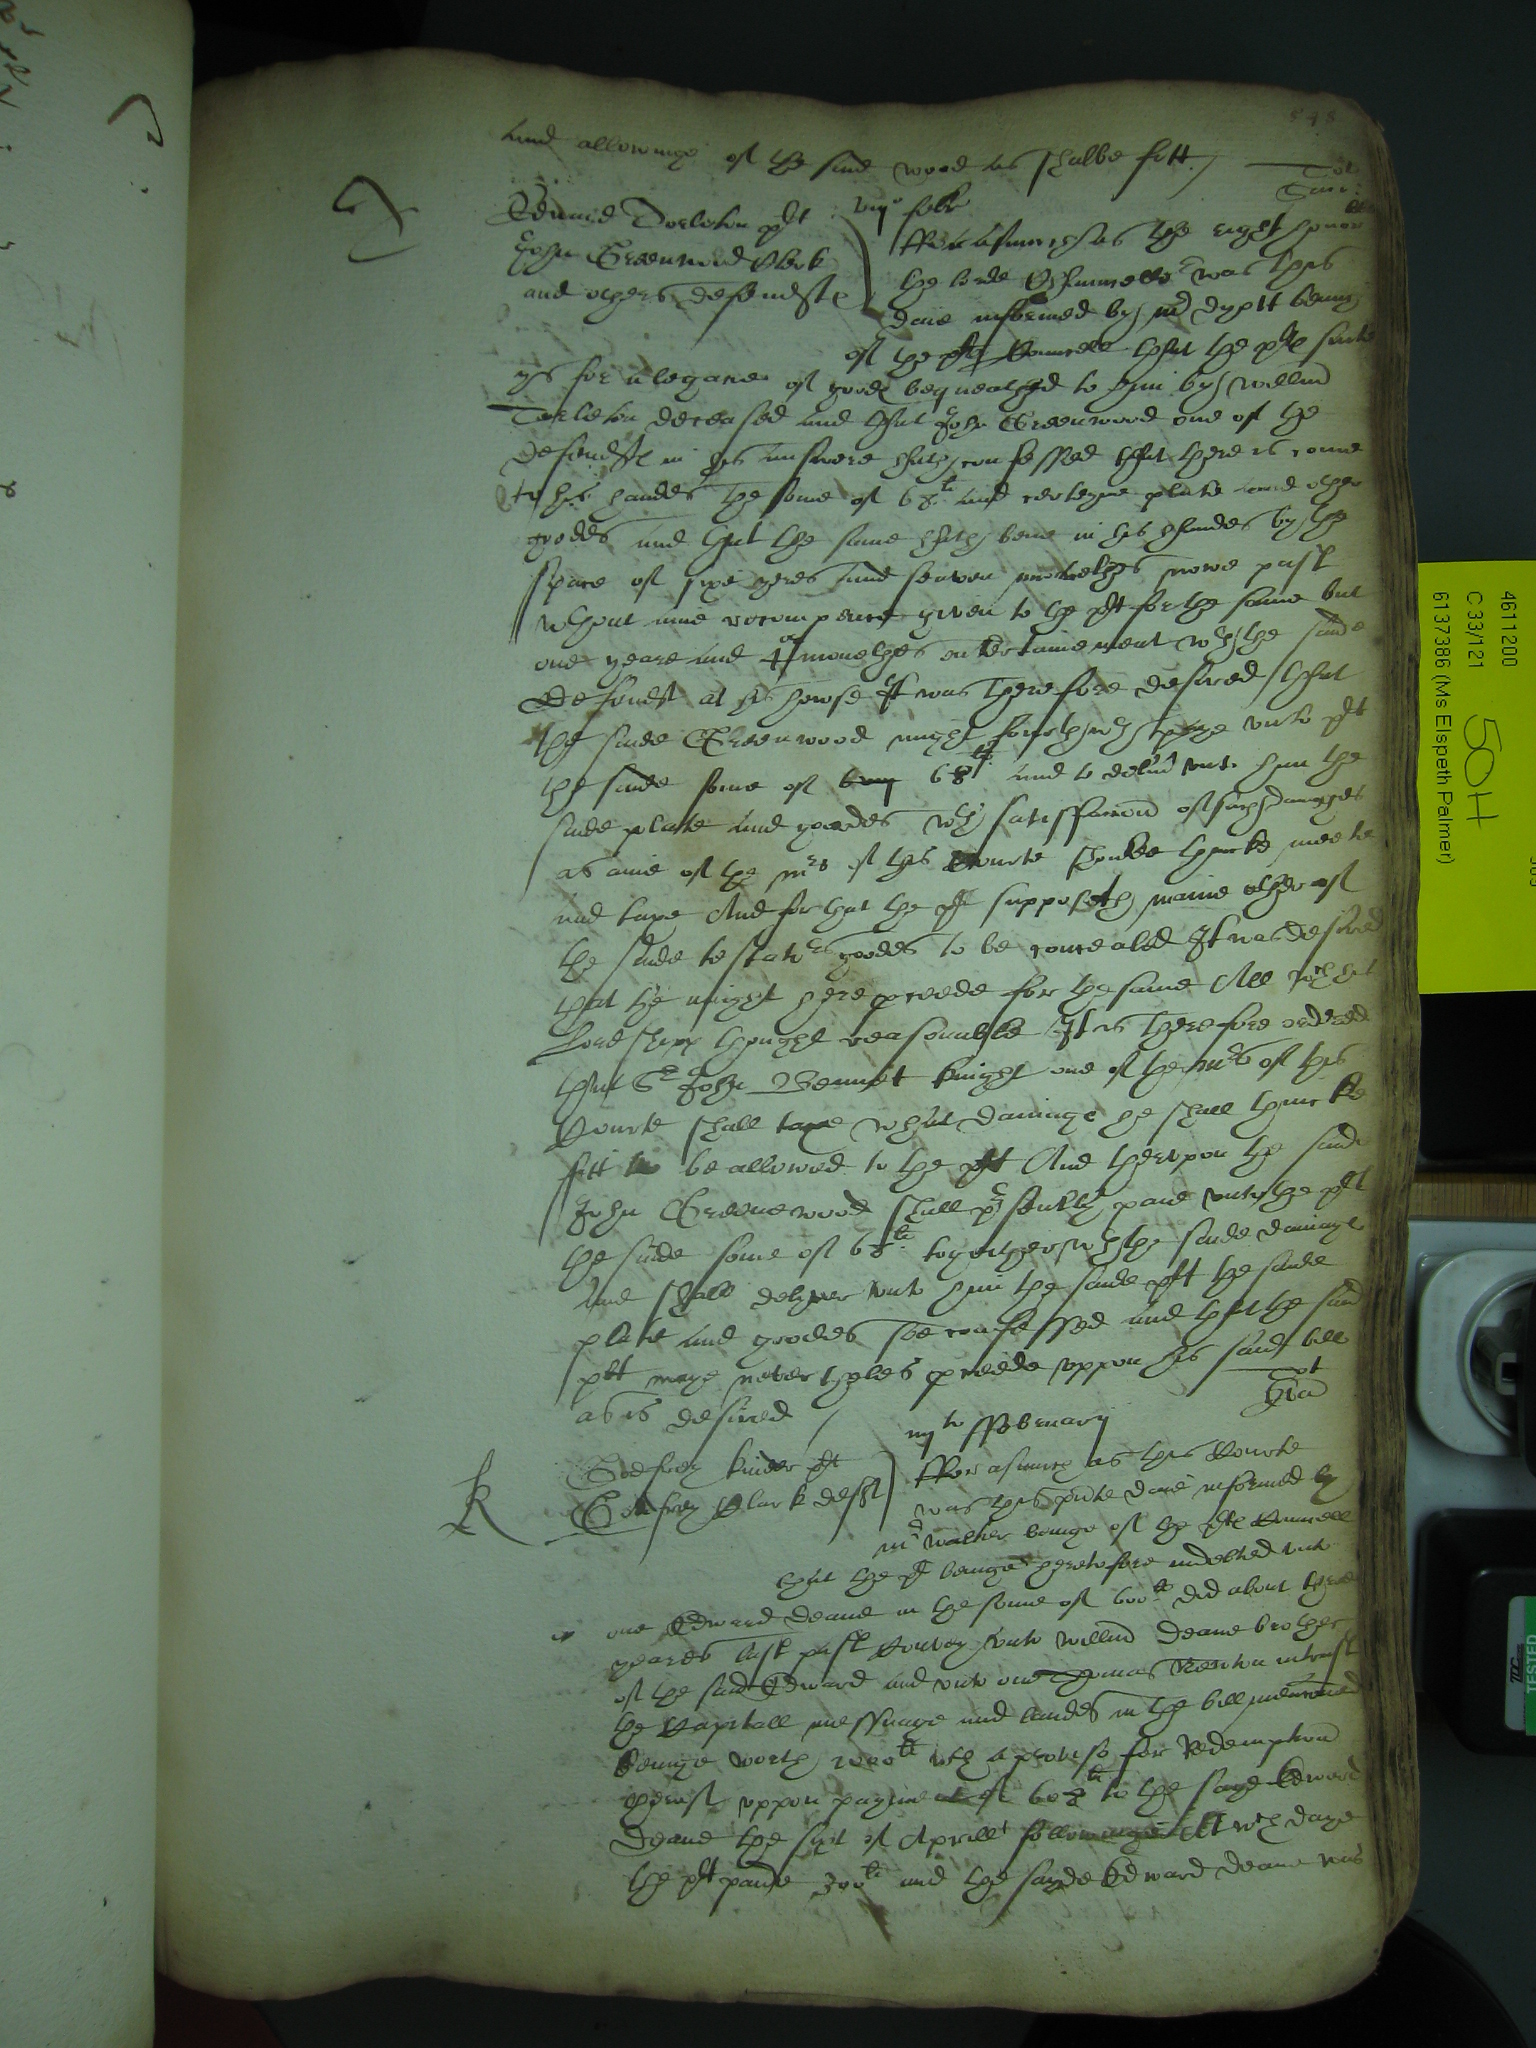 848
and allowinge of the said wood as shalbe fitt
T
Edward Torleton plt
John Greenwood Clerk
and others defendtes
viijo febr
fforasmuch as the right honor
the lorde Chauncellor was this
daie informed by mr dyott beinge
of the pltes Councell that the pltes suite
ys for a legacie of goodes bequeathed to him by Willm
Torleton deceased and that John Greenwood one of the
defendtes in his answere hath confessed that there is come
to his handes the some of 68li and certeyne plate and other
goodes and that the same hath bene in his handes by the
space of sixe yeres and seaven monethes nowe past
wthout anie recompence given to the plt for the same but
one yeare and 4or monethes entertainement wth the saide
defendt at his howse It was therefore desired that
the saide Greenwood might forthwth paye unto plt
the saide some of 68li and to deliver unto him the
saide plate and goodes wth satisfaccion of such damages
as anie of the mrs of this Courte shoulde thincke meete
and taxe And for that the plt supposeth manie other of
the saide testators goodes to be concealed It was desired
that he might here proceede for the same All wch his
Lordshipp thought reasonable It is therefore ordered
that Sr John Bennet knight one of the mrs of this
Courte shall taxe what damage he shall thincke
fitt to be allowed to the plt And thereupon the said
John Greenewood shall presently paie unto the plt
the saide some of 68li together wth the saide damage
and shall deliver unto him the saide plt the saide
plate and goodes soe confessed and that the said
plt maye nevertheles proceede uppon his said bill
as is desired
K
Godfrey kinder plt
Godfrey Clark deft
iiijto ffebruarij
fforasmuch as this Courte
was this presente daie informed by
mr walter beinge of the pltes Councell
that the plt beinge heretofore indebted unto
one Edward Deane in the some of 600li did about three
yeares last past Convey unto Willm Deane brother
of the said Edward and unto one Thomas Newton in trust
the Capitall messuage and landes in the bill mencioned
beinge worth 2000li wth a proviso for Redempcion
thereof uppon paymente of 600li to the saye Edward
Deane the first of Aprill followinge At wch daye
the plt paide 300li and the sayde Edward Deane was
4611200
C 33/121
50H
6137386 (Ms Elspeth Palmer)
TESTED